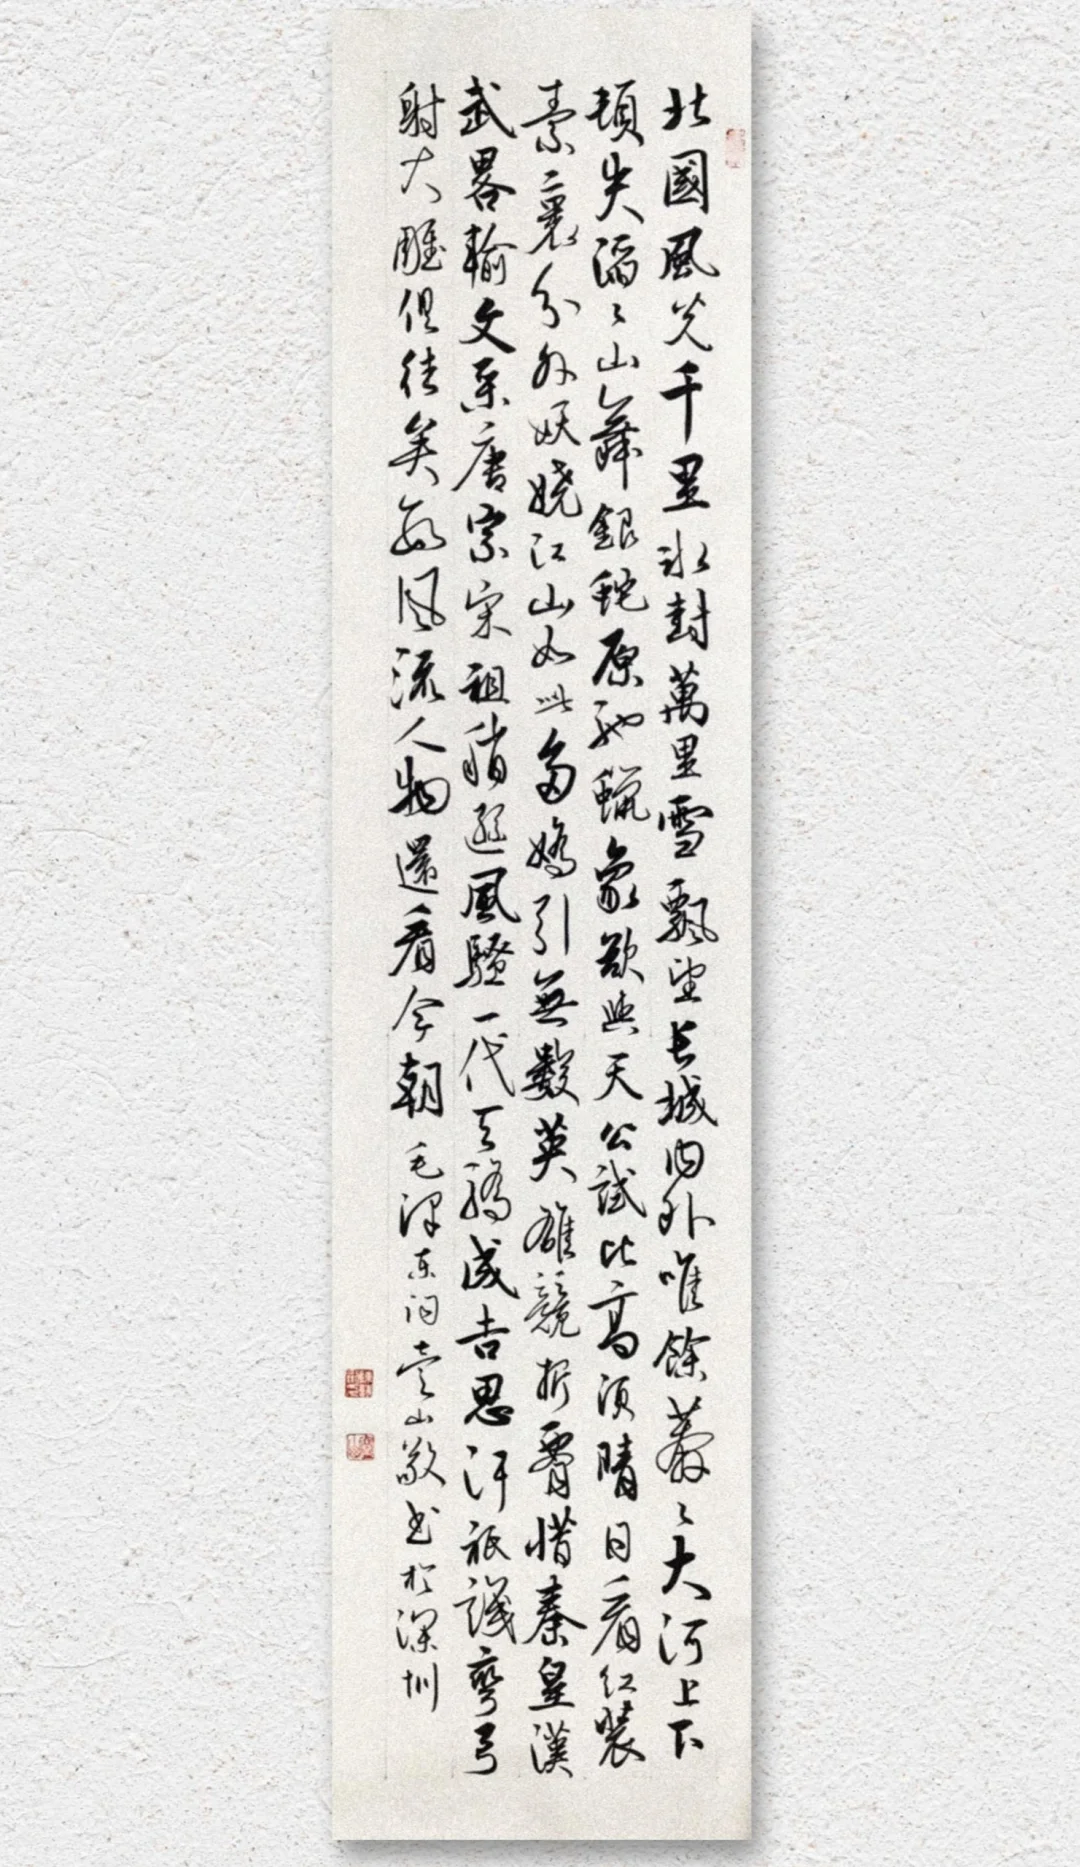 北國風光千里冰封萬里雪飄望長城內外唯餘莽々大河上下
頓失滔々山舞銀蛇原馳蠟象欲與天公試比高須晴日看紅裝
素裹分外妖嬈江山如此多嬌引無數英雄競折腰惜秦皇漢
武畧輸文采唐宗宋祖稍遜風騷一代天驕成吉思汗祇識彎弓
射大雕俱往矣數風流人物還看今朝 毛澤東詞 壹山敬書於深圳